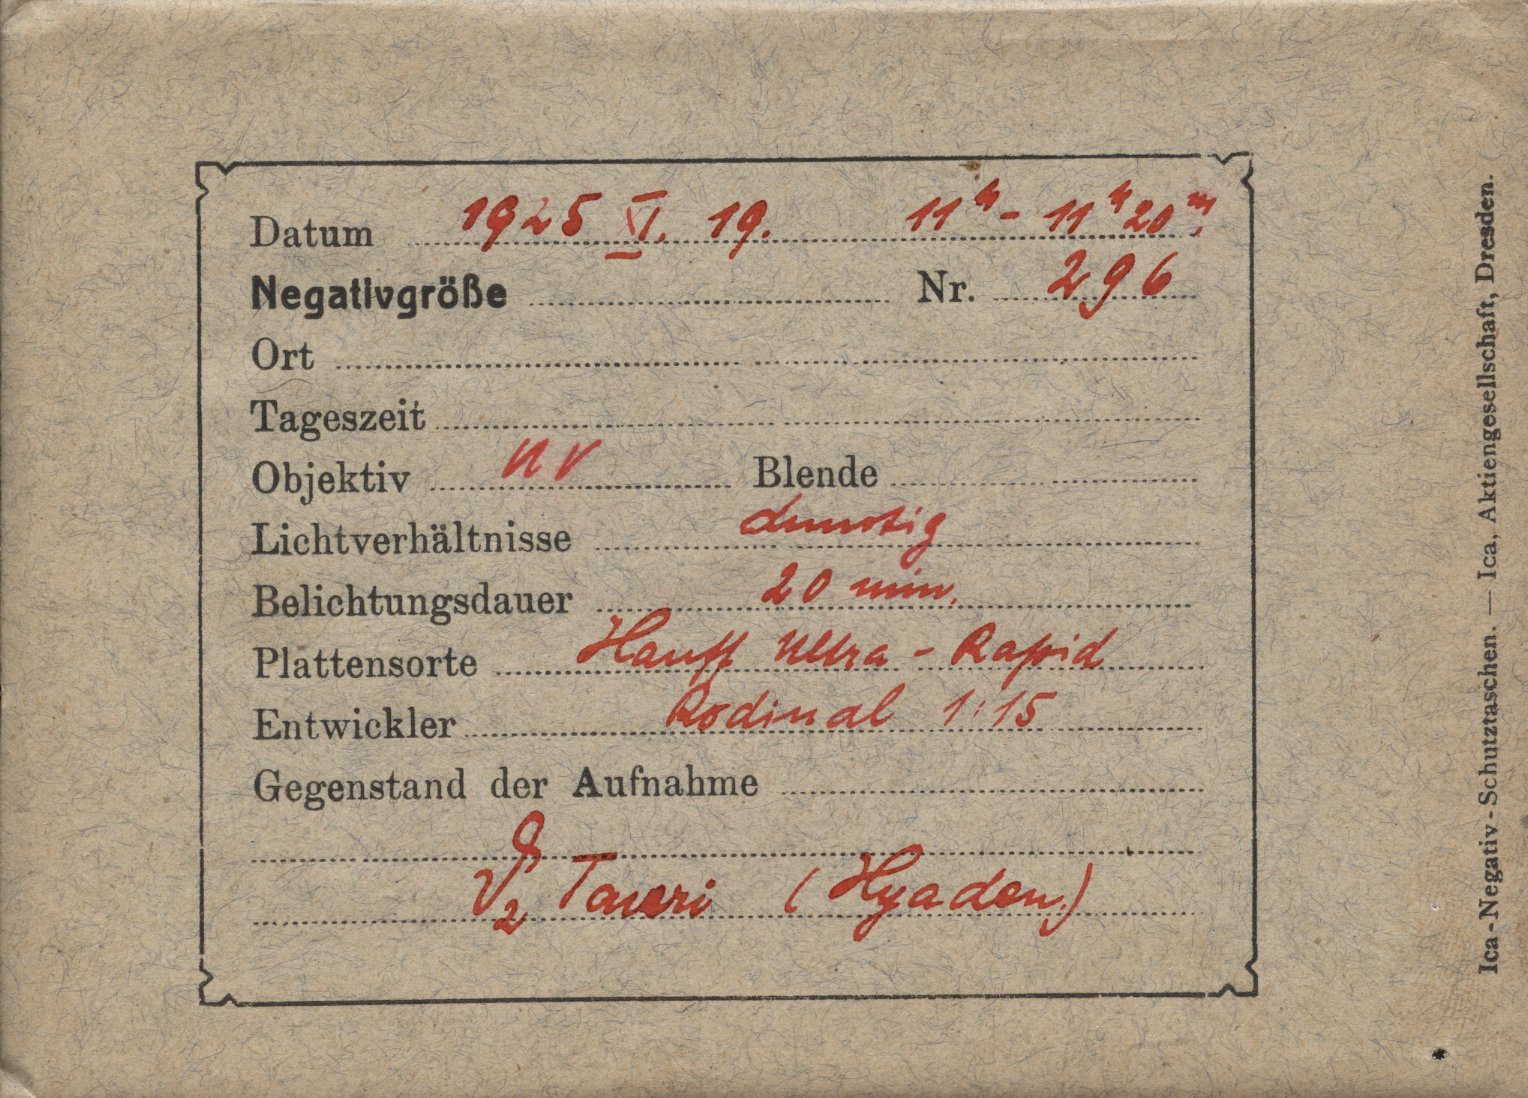 Datum 1925 XI. 19. 11ʰ - 11ʰ20ᵐ.
Negativgröße Nr. 296
Ort
Tageszeit
Objektiv UV
Blende
Lichtverhältnisse dunstig
Belichtungsdauer 20 min.
Plattensorte Hauff Ultra-Rapid
Entwickler Rodinal 1:15
Gegenstand der Aufnahme
ϑ₂ Tauri (Hyaden)
Ica-Negativ-Schutztaschen. — Ica, Aktiengesellschaft, Dresden.